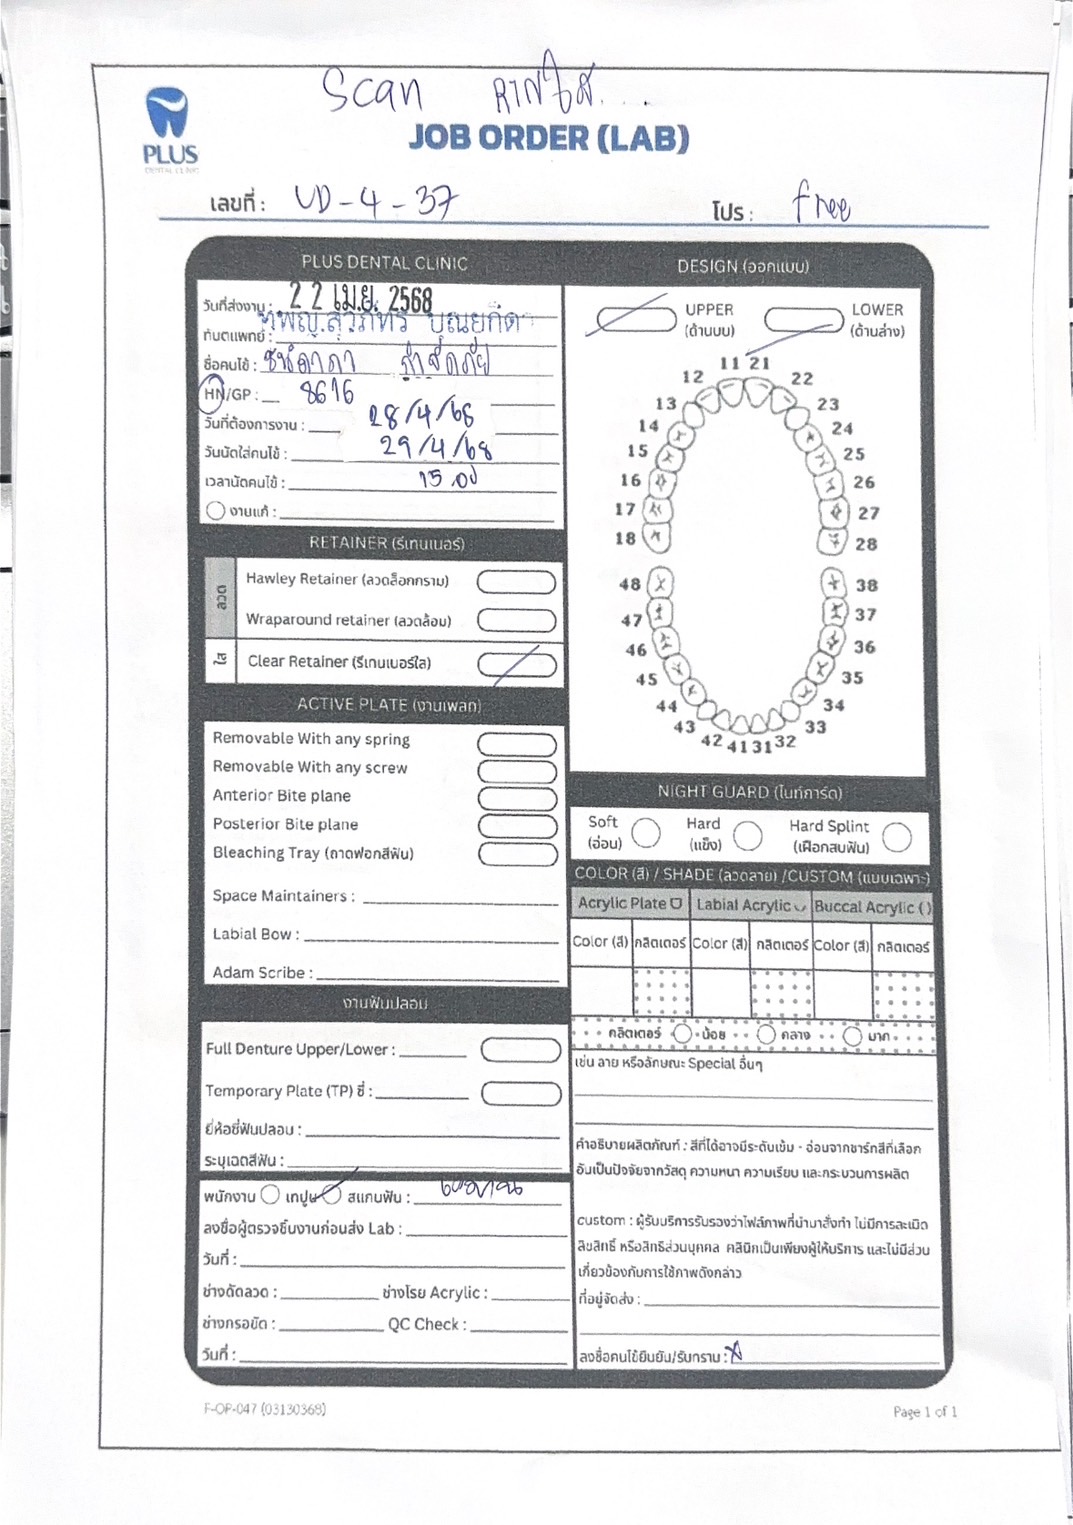 Scan
PLUS
DENTAL CLINIC
JOB ORDER (LAB)
เลขที่ : UD-4-37
โปร : free
PLUS DENTAL CLINIC
วันที่ส่งงาน : 22 เม.ย. 2568
ทันตแพทย์ : ทพญ.สุวภัทร บุณยกิดา
ชื่อคนไข้ :
HN/GP : 8616
วันที่ต้องการงาน : 28/4/68
วันนัดใส่คนไข้ : 29/4/68
เวลานัดคนไข้ : 15.00
งานแก้ :
RETAINER (รีเทนเนอร์)
ลวด
Hawley Retainer (ลวดล็อกกราม)
Wraparound retainer (ลวดล้อม)
ใส
Clear Retainer (รีเทนเนอร์ใส)
ACTIVE PLATE (งานเพลท)
Removable With any spring
Removable With any screw
Anterior Bite plane
Posterior Bite plane
Bleaching Tray (ถาดฟอกสีฟัน)
Space Maintainers :
Labial Bow :
Adam Scribe :
งานฟันปลอม
Full Denture Upper/Lower :
Temporary Plate (TP) ซี่ :
ยี่ห้อซี่ฟันปลอม :
ระบุเฉดสีฟัน :
พนักงาน เทปูน สแกนฟัน :
ลงชื่อผู้ตรวจชิ้นงานก่อนส่ง Lab :
วันที่ :
ช่างดัดลวด : ช่างโรย Acrylic :
ช่างกรอขัด : QC Check :
วันที่ :
DESIGN (ออกแบบ)
UPPER
(ด้านบน)
LOWER
(ด้านล่าง)
11 21
12 22
13 23
14 24
15 25
16 26
17 27
18 28
48 38
47 37
46 36
45 35
44 34
43 33
42 41 31 32
NIGHT GUARD (ไนท์การ์ด)
Soft
(อ่อน)
Hard
(แข็ง)
Hard Splint
(เฝือกสบฟัน)
COLOR (สี) / SHADE (ลวดลาย) /CUSTOM (แบบเฉพาะ)
Acrylic Plate Labial Acrylic Buccal Acrylic ( )
Color (สี) กลิตเตอร์ Color (สี) กลิตเตอร์ Color (สี) กลิตเตอร์
กลิตเตอร์ น้อย กลาง มาก
เช่น ลาย หรือลักษณะ Special อื่นๆ
คำอธิบายผลิตภัณฑ์ : สีที่ได้อาจมีระดับเข้ม - อ่อนจากชาร์ทสีที่เลือก
อันเป็นปัจจัยจากวัสดุ ความหนา ความเรียบ และกระบวนการผลิต
custom : ผู้รับบริการรับรองว่าไฟล์ภาพที่นำมาสั่งทำ ไม่มีการละเมิด
ลิขสิทธิ์ หรือสิทธิส่วนบุคคล คลินิกเป็นเพียงผู้ให้บริการ และไม่มีส่วน
เกี่ยวข้องกับการใช้ภาพดังกล่าว
ที่อยู่จัดส่ง :
ลงชื่อคนไข้ยืนยัน/รับทราบ : x
F-OP-047 (03130368)
Page 1 of 1